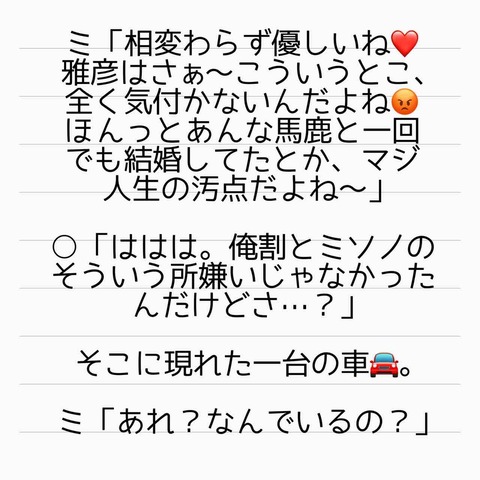 ミ「相変わらず優しいね❤️
雅彦はさぁ〜こういうとこ、
全く気付かないんだよね😡
ほんっとあんな馬鹿と一回
でも結婚してたとか、マジ
人生の汚点だよね〜」
○「ははは。俺割とミソノの
そういう所嫌いじゃなかった
んだけどさ…？」
そこに現れた一台の車🚘。
ミ「あれ？なんでいるの？」